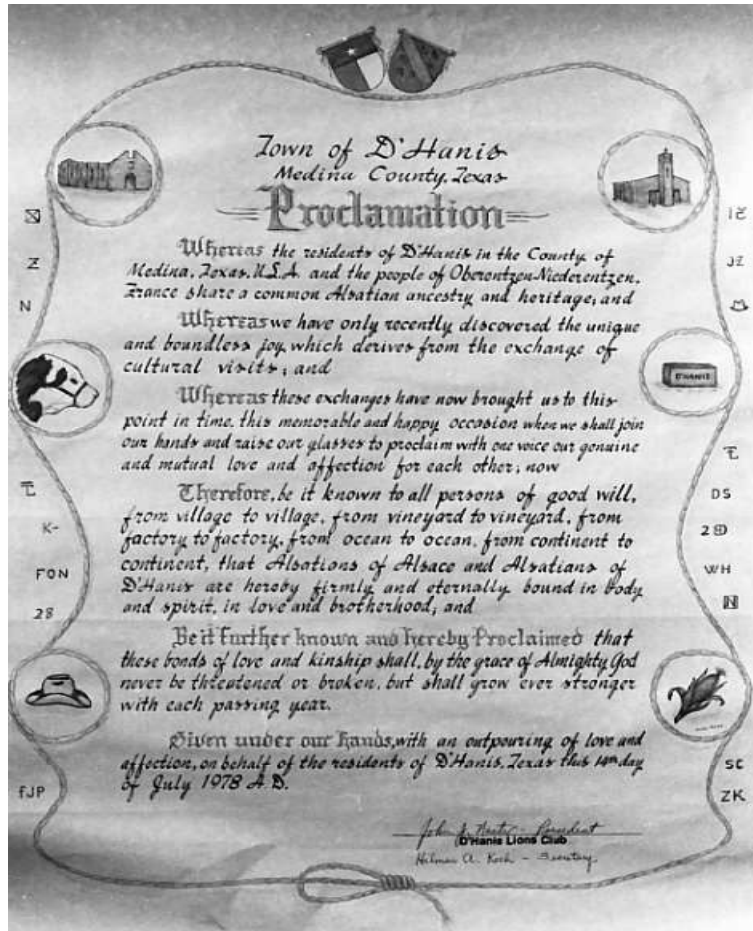 Town of D'Hanis
Medina County, Texas
Proclamation
Whereas the residents of D'Hanis in the County of
Medina, Texas, U.S.A. and the people of Oberentzen-Niederentzen,
France share a common Alsatian ancestry and heritage; and
Whereas we have only recently discovered the unique
and boundless joy, which derives from the exchange of
cultural visits; and
Whereas these exchanges have now brought us to this
point in time, this memorable and happy occasion when we shall join
our hands and raise our glasses to proclaim with one voice our genuine
and mutual love and affection for each other; now
Therefore, be it known to all persons of good will,
from village to village, from vineyard to vineyard, from
factory to factory, from ocean to ocean, from continent to
continent, that Alsatians of Alsace and Alsatians of
D'Hanis are hereby firmly and eternally bound in body
and spirit, in love and brotherhood; and
Be it further known and hereby Proclaimed that
these bonds of love and kinship shall, by the grace of Almighty God
never be threatened or broken, but shall grow ever stronger
with each passing year.
Given under our hands, with an outpouring of love and
affection, on behalf of the residents of D'Hanis, Texas this 14th day
of July 1978 A.D.
John J. - President
D'Hanis Lions Club
Hilmar A. Koch - Secretary.
Z
N
K-
FON
28
FJP
D'HANIS
DS
WH
SC
ZK